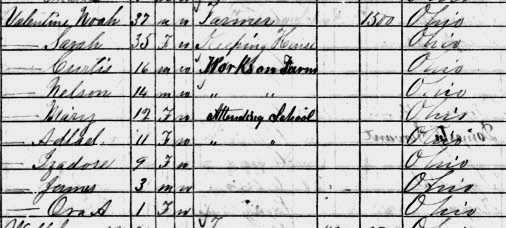 Valentine Noah 37 m w Farmer 1500 Ohio
— Sarah 35 F w Keeping House Ohio
— Curtis 16 m w Works on Farm Ohio
— Nelson 14 m w " " Ohio
— Mary 12 F w Attending School Ohio
— 11 F w " " Ohio
— Izadore 9 F w Ohio
— James 3 m w Ohio
— Ora A 1 F w Ohio